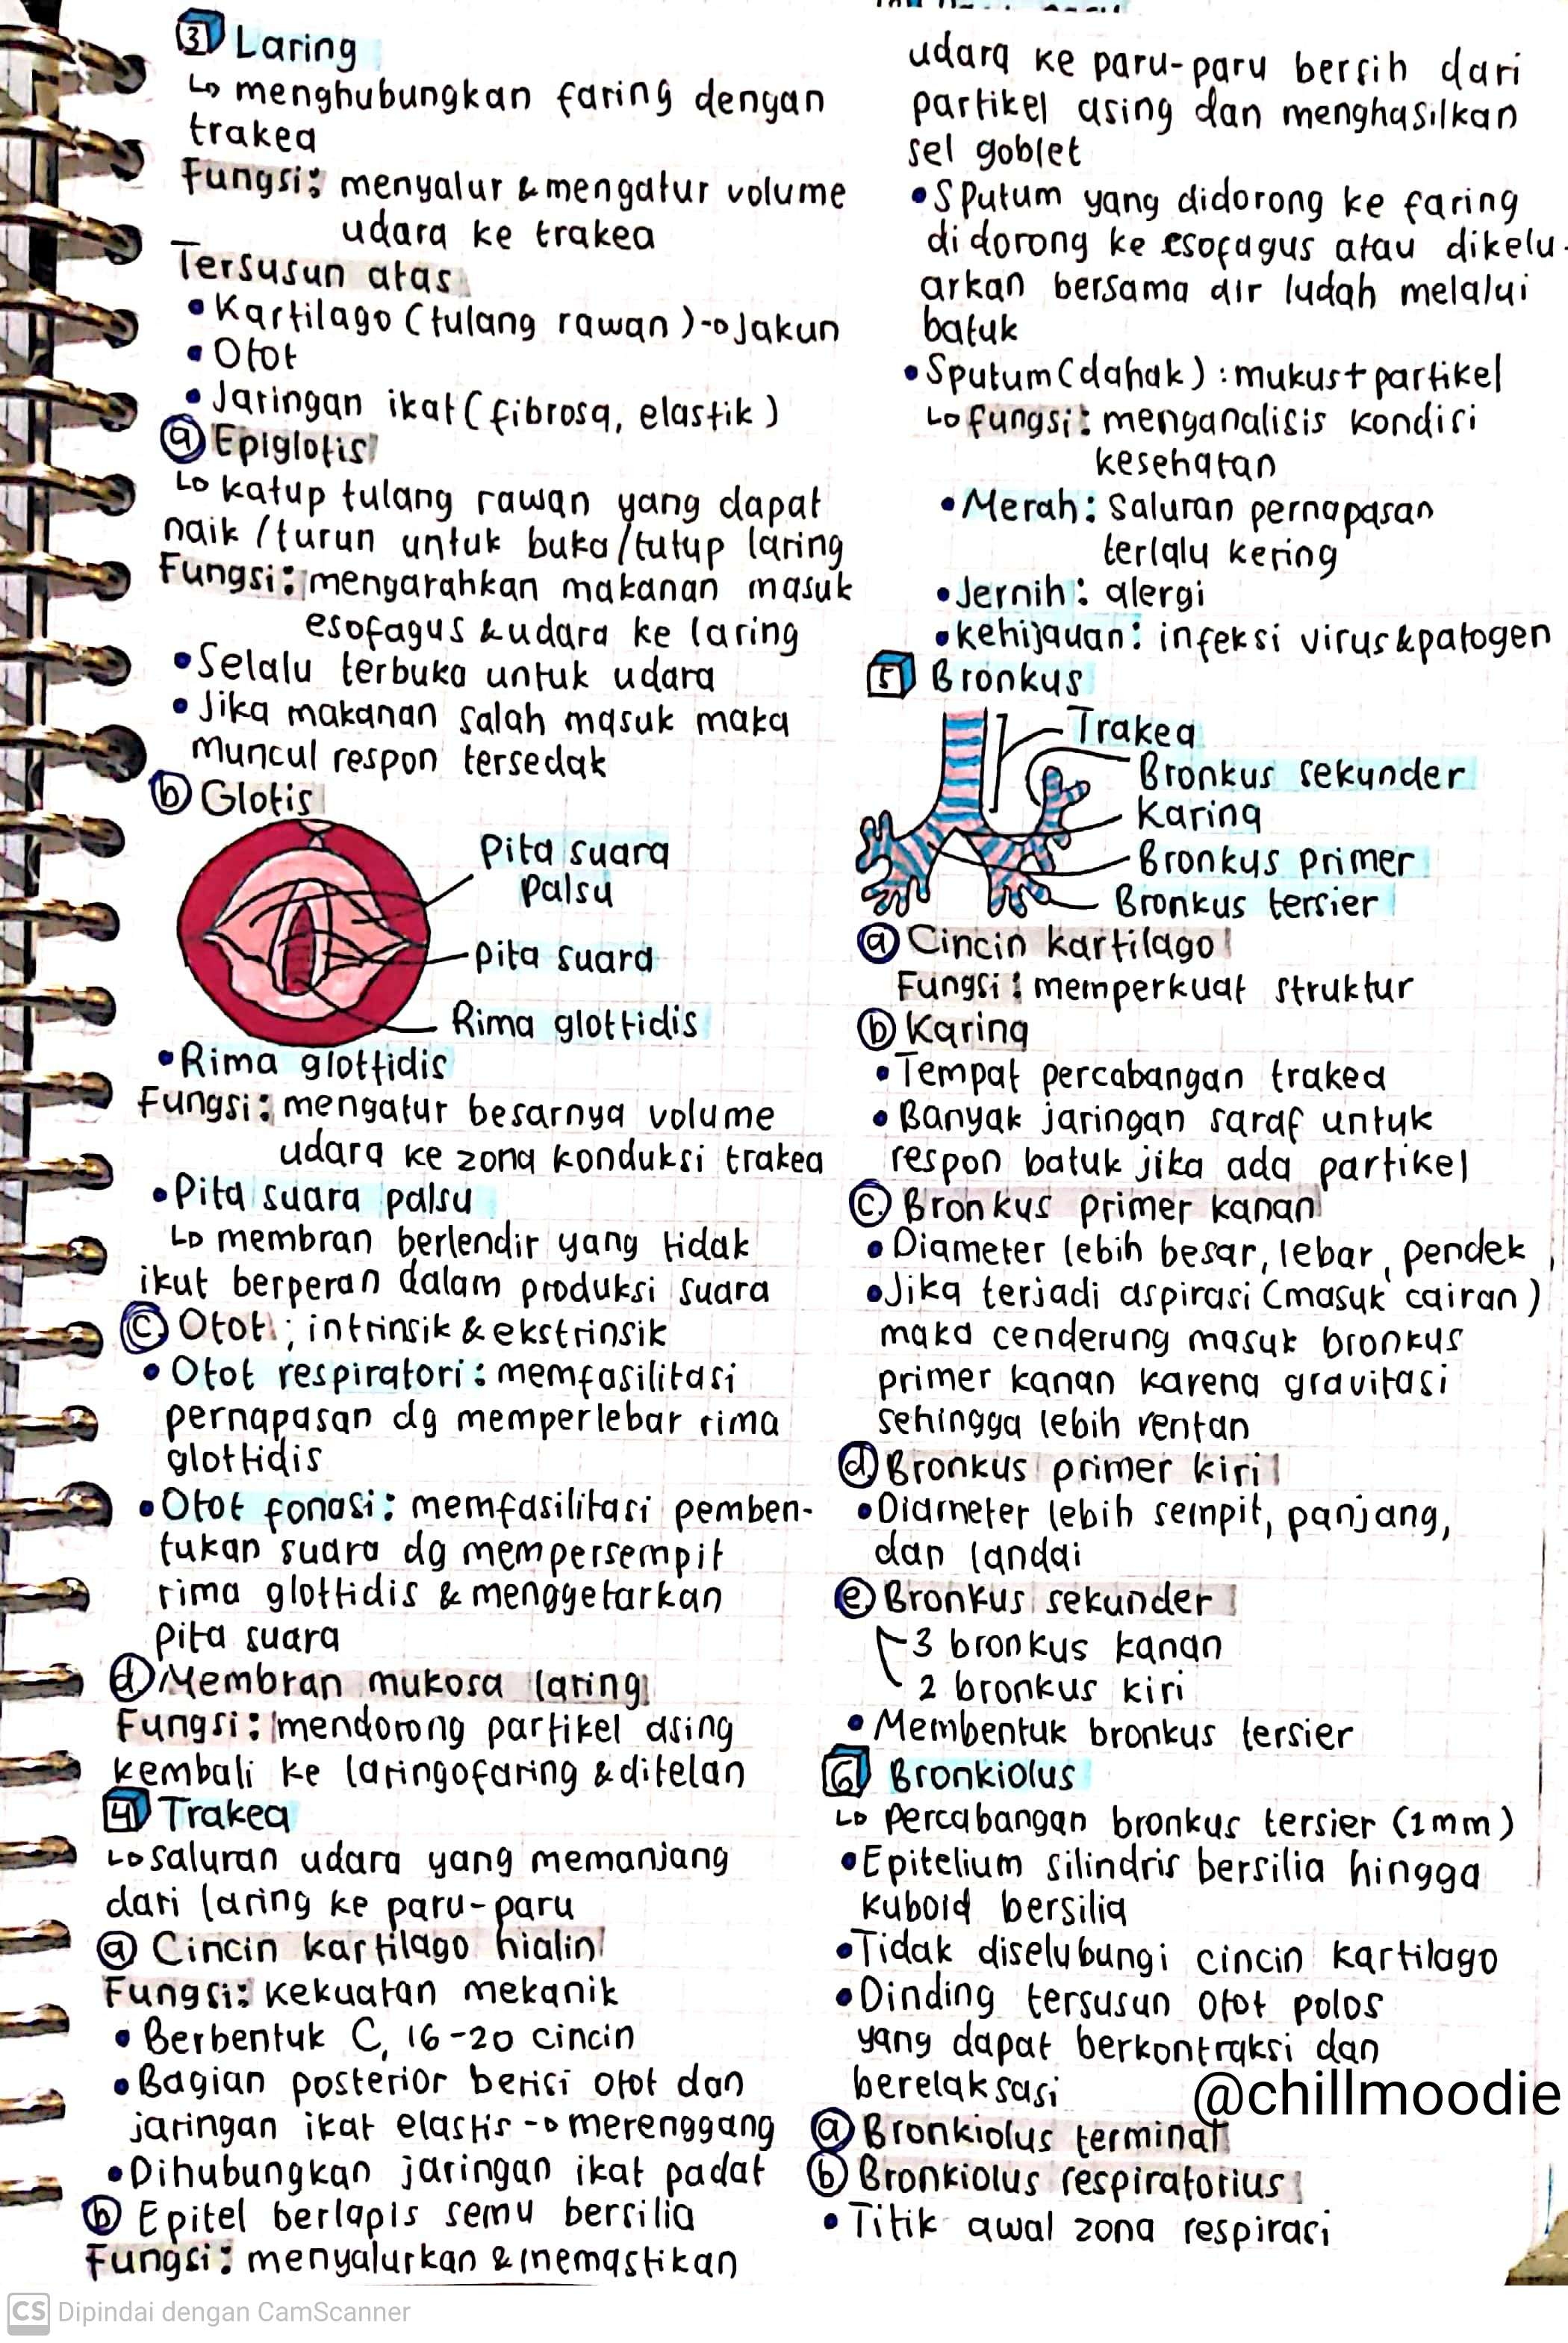 3 Laring
↳ menghubungkan faring dengan
trakea
Fungsi: menyalur & mengatur volume
udara ke trakea
Tersusun atas
• Kartilago (tulang rawan) → Jakun
• Otot
• Jaringan ikat (fibrosa, elastik)
a Epiglotis
↳ katup tulang rawan yang dapat
naik /turun untuk buka/tutup laring
Fungsi: mengarahkan makanan masuk
esofagus & udara ke laring
• Selalu terbuka untuk udara
• Jika makanan salah masuk maka
muncul respon tersedak
b Glotis
Pita suara
palsu
Pita suara
Rima glottidis
• Rima glottidis
Fungsi: mengatur besarnya volume
udara ke zona konduksi trakea
• Pita suara palsu
↳ membran berlendir yang tidak
ikut berperan dalam produksi suara
c. Otot ; intrinsik & ekstrinsik
• Otot respiratori: memfasilitasi
pernapasan dg memperlebar rima
glottidis
• Otot fonasi: memfasilitasi pemben-
tukan suara dg mempersempit
rima glottidis & menggetarkan
pita suara
d Membran mukosa laring
Fungsi: mendorong partikel asing
kembali ke laringofaring & ditelan
4 Trakea
↳ saluran udara yang memanjang
dari laring ke paru-paru
a Cincin kartilago hialin
Fungsi: kekuatan mekanik
• Berbentuk C, 16-20 cincin
• Bagian posterior berisi otot dan
jaringan ikat elastis → merenggang
• Dihubungkan jaringan ikat padat
b Epitel berlapis semu bersilia
Fungsi: menyalurkan & memastikan
udara ke paru-paru bersih dari
partikel asing dan menghasilkan
sel goblet
• Sputum yang didorong ke faring
didorong ke esofagus atau dikelu-
arkan bersama air ludah melalui
batuk
• Sputum (dahak) : mukus + partikel
↳ fungsi: menganalisis kondisi
kesehatan
• Merah: Saluran pernapasan
terlalu kering
• Jernih: alergi
• kehijauan: infeksi virus & patogen
5 Bronkus
Trakea
Bronkus sekunder
Karina
Bronkus primer
Bronkus tersier
a Cincin kartilago
Fungsi: memperkuat struktur
b Karina
• Tempat percabangan trakea
• Banyak jaringan saraf untuk
respon batuk jika ada partikel
c. Bronkus primer kanan
• Diameter lebih besar, lebar, pendek,
• Jika terjadi aspirasi (masuk cairan)
maka cenderung masuk bronkus
primer kanan karena gravitasi
sehingga lebih rentan
d. Bronkus primer kiri
• Diameter lebih sempit, panjang,
dan landai
e Bronkus sekunder
3 bronkus kanan
2 bronkus kiri
• Membentuk bronkus tersier
6 Bronkiolus
↳ percabangan bronkus tersier (1mm)
• Epitelium silindris bersilia hingga
kuboid bersilia
• Tidak diselubungi cincin kartilago
• Dinding tersusun otot polos
yang dapat berkontraksi dan
berelaksasi
@chillmoodie
a Bronkiolus terminal
b Bronkiolus respiratorius
• Titik awal zona respirasi
CS Dipindai dengan CamScanner